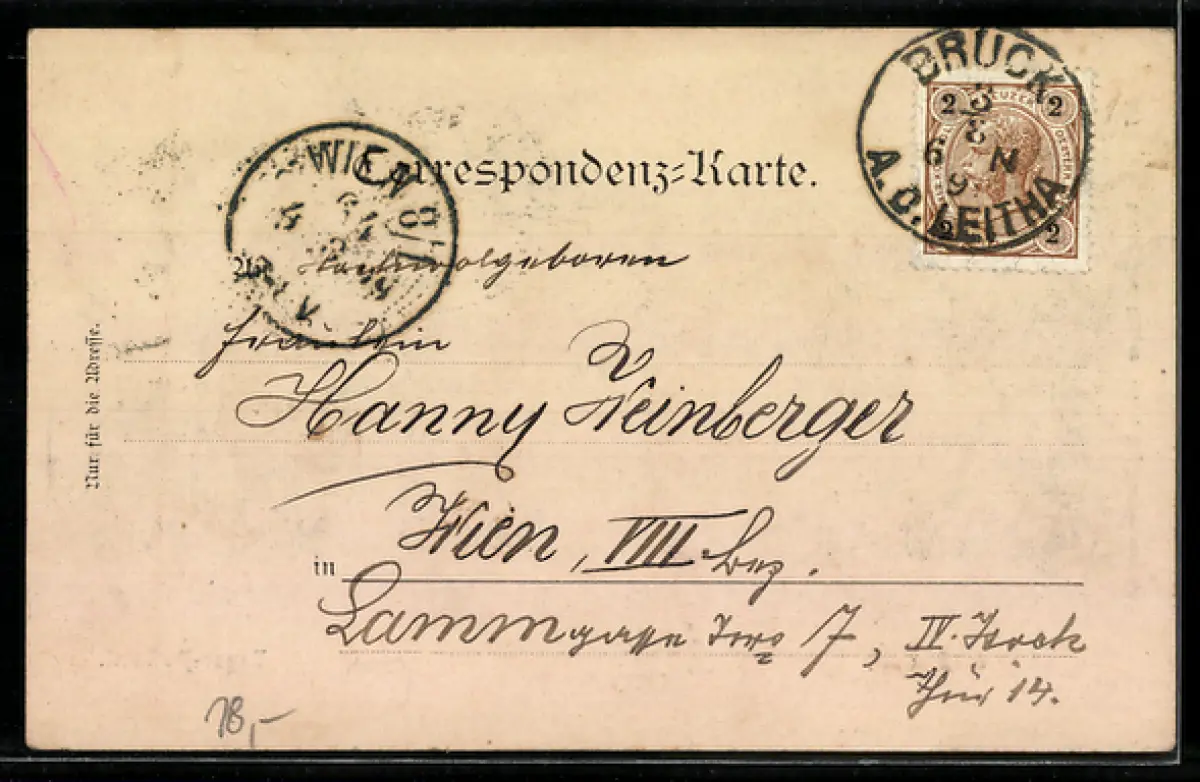 BRUCK
A. D. LEITHA
2 KREUZER 2
2 2
WIEN 8/1
Correspondenz-Karte.
Hochwolgeboren
Fräulein
Hanny Weinberger
Wien, VIII Bez.
in
Lammgasse Nro 7, IV. Stock
Thür 14.
Nur für die Adresse.
18,-